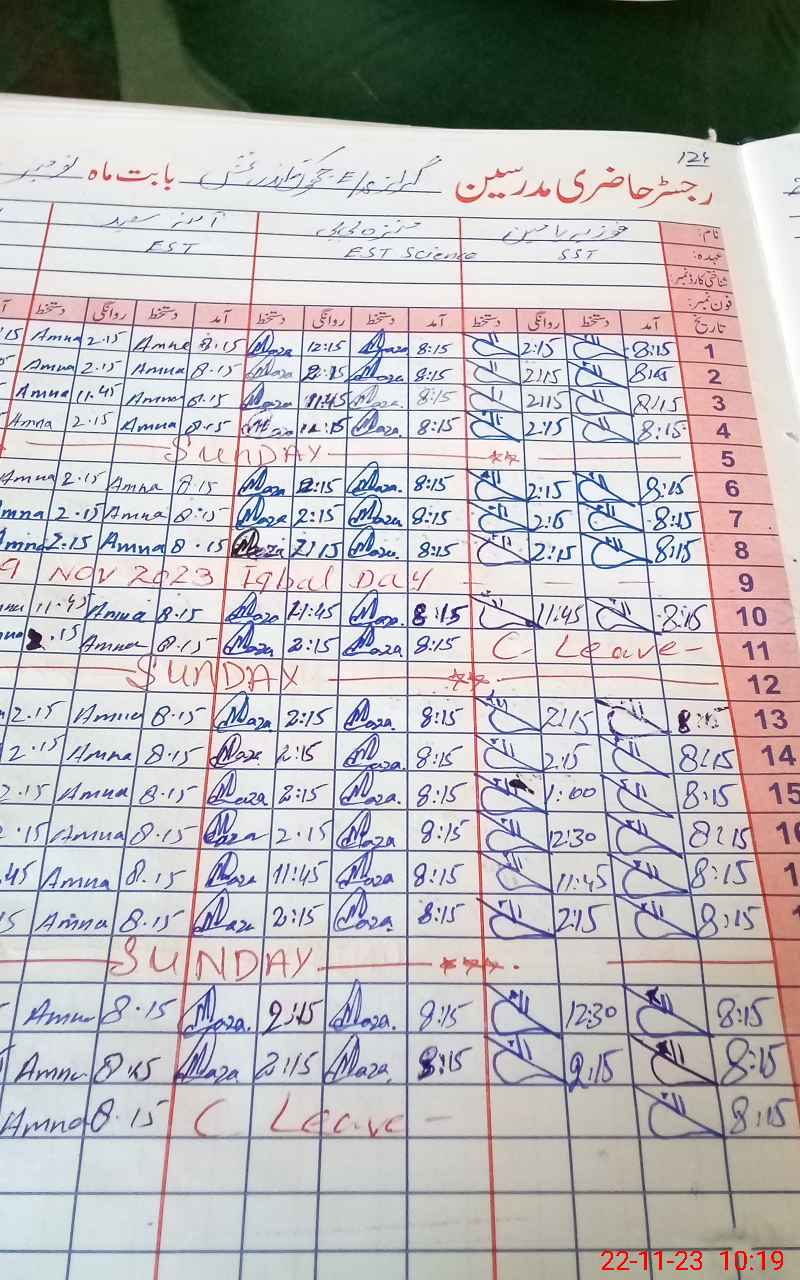 124
رجسٹر حاضری مدرسین بابت ماہ نومبر
نام: فوزیہ یاسین منزہ بی بی آمنہ سعید
عہدہ: SST EST Science EST
شناختی کارڈ نمبر:
فون نمبر:
تاریخ آمد دستخط روانگی دستخط آمد دستخط روانگی دستخط آمد دستخط روانگی دستخط
1 8:15 2:15 8:15 Maza 12:15 Maza 8.15 Amna 2.15 Amna
2 8:15 2:15 8:15 Maza. 2:15 Maza 8.15 Amna 2.15 Amna
3 8:15 2:15 8:15 Maza. 11:45 Maza 8.15 Amna 11.45 Amna
4 8:15 2:15 8:15 Maza. Maza 8.15 Amna 2.15 Amna
5 SUNDAY
6 8:15 2:15 8:15 Maza. 2:15 Maza 8.15 Amna 2.15 Amna
7 8:15 8:15 Maza. 2:15 Maza 8.15 Amna 2.15 Amna
8 8:15 2:15 8:15 Maza. 2:15 Maza 8.15 Amna 2.15 Amna
9 9 NOV 2023 Iqbal Day
10 8:15 11:45 8:15 Maza. 11:45 Maza 8.15 Amna 11.45
11 C Leave- 8:15 Maza. 2:15 Maza 8.15 Amna .15
12 SUNDAY
13 8:15 2:15 8:15 Maza. 2:15 Maza 8.15 Amna 2.15
14 8:15 2:15 8:15 Maza. 2:15 Maza 8.15 Amna 2.15
15 8:15 1:00 8:15 Maza. 2:15 Maza 8.15 Amna 2.15
8:15 12:30 8:15 Maza. 2.15 Maza 8.15 Amna .15
8:15 11:45 8:15 Maza. 11:45 Maza 8.15 Amna .45
8:15 2:15 8:15 Maza. 2:15 Maza 8.15 Amna
SUNDAY
8:15 12:30 8:15 Maza. 2:15 Maza. 8.15 Amna
8:15 2:15 8:15 Maza. 2:15 Maza 8.15 Amna
8:15 C Leave- 8.15 Amna
22-11-23 10:19